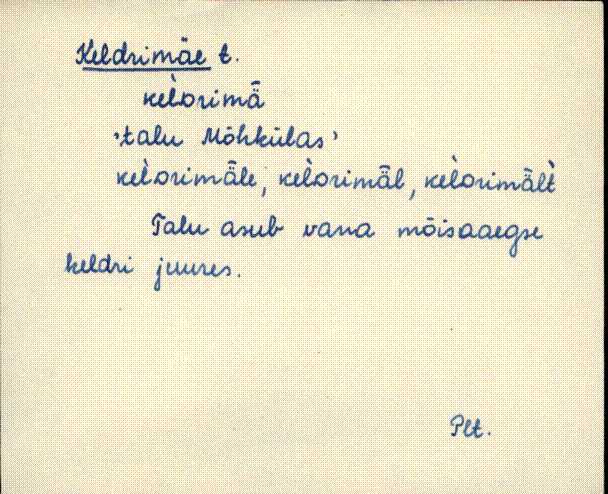 Keldrimäe t.
kèlᴅrimä̆
'talu Mõhkülas'
kèlᴅrimäle, kèlᴅrimäl, kèlᴅrimält
Talu asub vana mõisaaegse
keldri juures.
Plt.